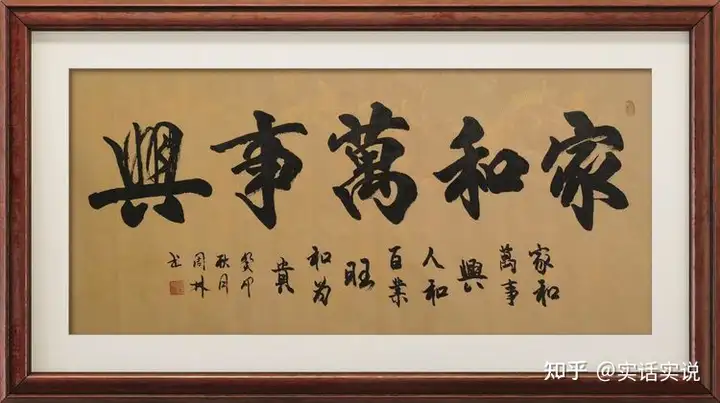 家和萬事興
家和
萬事
興
人和
百業
旺
和为
貴
癸卯
秋月
周林
书
知乎 @实话实说